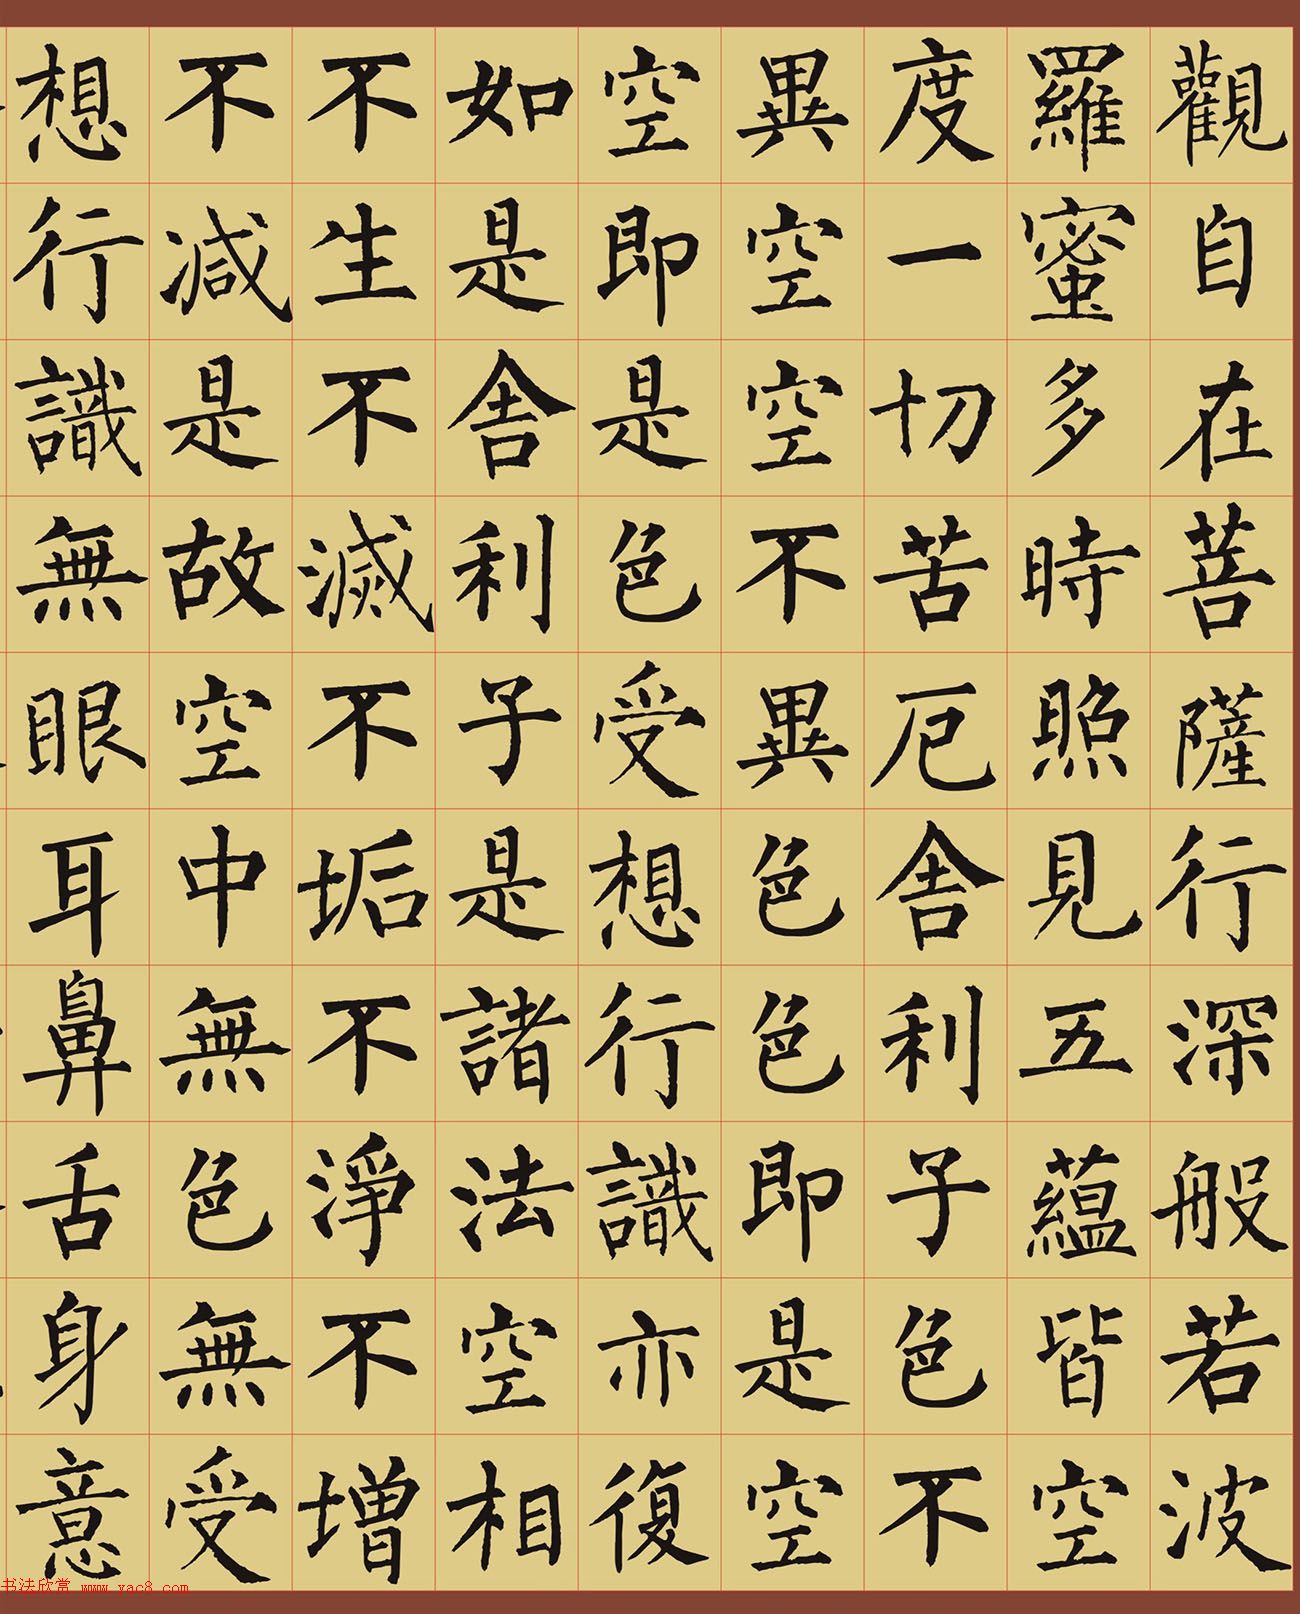 觀自在菩薩行深般若波
羅蜜多時照見五蘊皆空
度一切苦厄舍利子色不
異空空不異色色即是空
空即是色受想行識亦復
如是舍利子是諸法空相
不生不滅不垢不淨不增
不減是故空中無色無受
想行識無眼耳鼻舌身意
书法欣赏 www.yac8.com